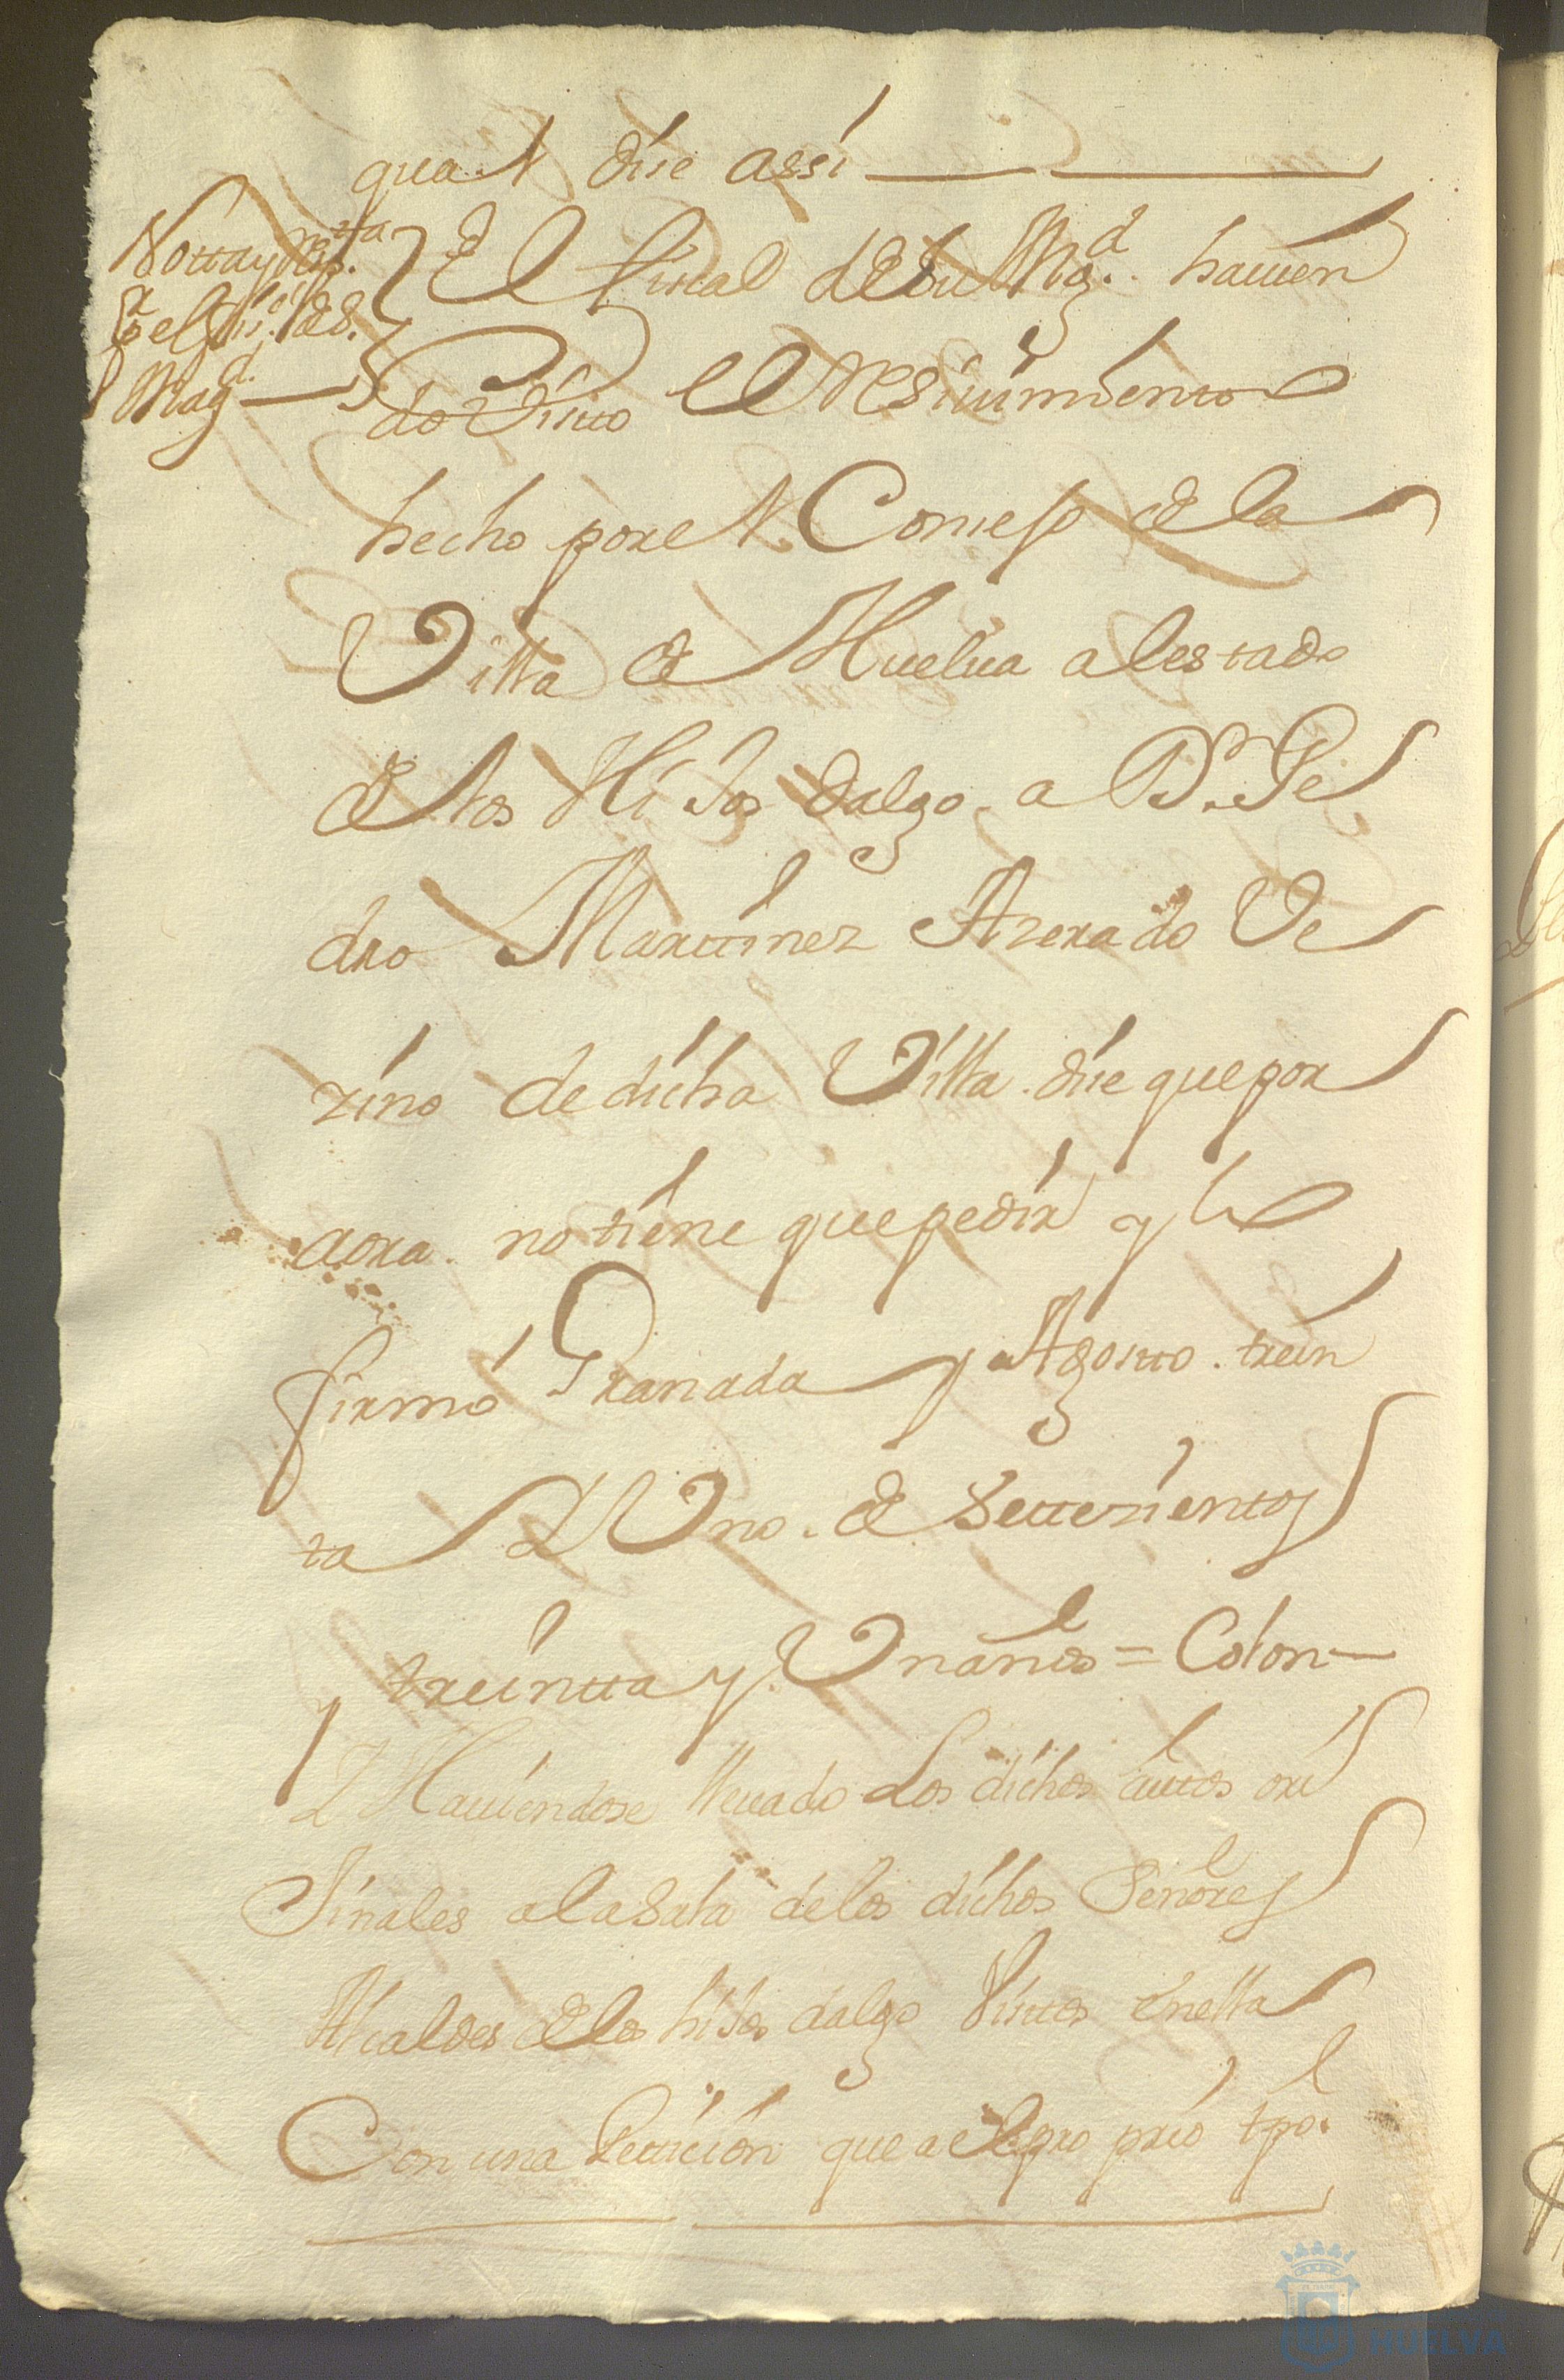 qual dise assi
Notta y Resp.tta
p.r el fis.l de S.
Mag.d
El fiscal de su Mag.d haviien
do Visto el Resiuimiento
hecho por el Consejo de la
Villa de Huelua al estado
de los Hijos dalgo a D.n Pe
dro Marttinez Azerado Ve
zino de dicha Villa. dise que por
aora. no tiene que pedir y lo
firmó Granada y Agosto. trein
ta Y Uno. de Settezientos
treintta y Un años = Colon
Y Hauiendose lleuado Los dichos auttos ori
Jinales a la Sala de los dichos Señores
Alcaldes de los hijos dalgo Vistos en ella
Con una Pettizion que a el pro prio tpo.
HUELVA